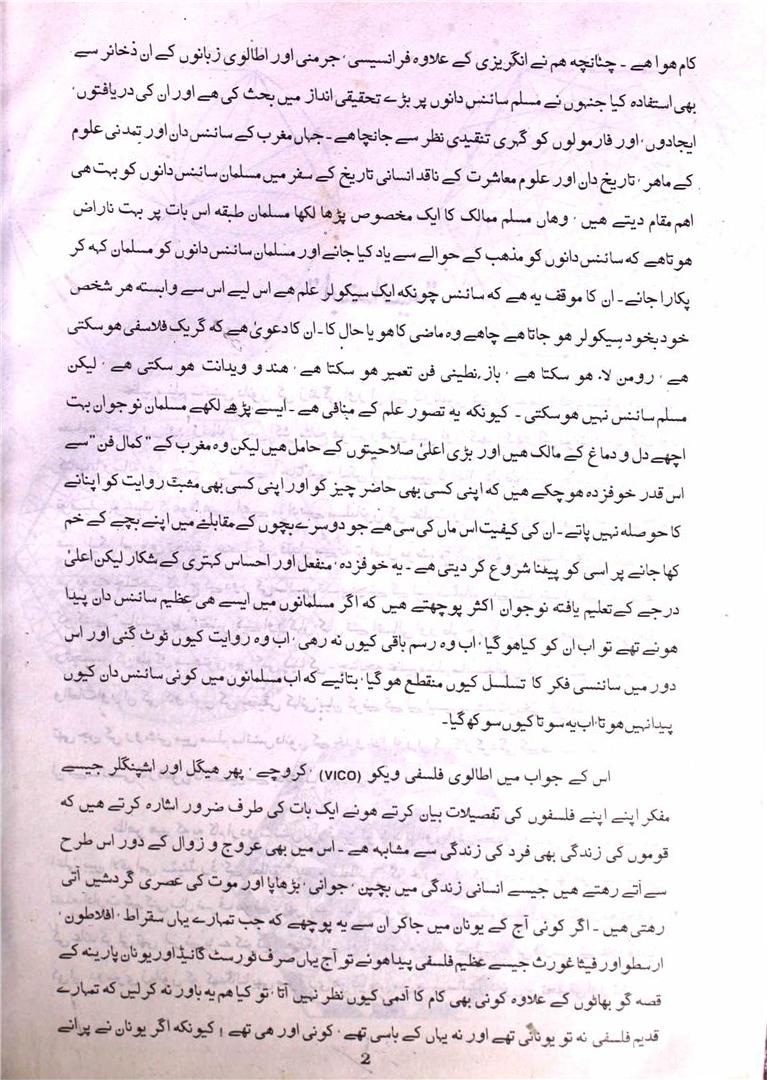 کام ہوا ہے ۔ چنانچہ ہم نے انگریزی کے علاوہ فرانسیسی ، جرمنی اور اطالوی زبانوں کے ان ذخائر سے
بھی استفادہ کیا جنہوں نے مسلم سائنس دانوں پر بڑے تحقیقی انداز میں بحث کی ہے اور ان کی دریافتوں،
ایجادوں، اور فارمولوں کو گہری تنقیدی نظر سے جانچا ہے ۔ جہاں مغرب کے سائنس دان اور تمدنی علوم
کے ماہر ، تاریخ دان اور علوم معاشرت کے ناقد انسانی تاریخ کے سفر میں مسلمان سائنس دانوں کو بہت ہی
اہم مقام دیتے ہیں ، وہاں مسلم ممالک کا ایک مخصوص پڑھا لکھا مسلمان طبقہ اس بات پر بہت ناراض
ہوتا ہے کہ سائنس دانوں کو مذہب کے حوالے سے یاد کیا جائے اور مسلمان سائنس دانوں کو مسلمان کہہ کر
پکارا جائے ۔ ان کا موقف یہ ہے کہ سائنس چونکہ ایک سیکولر علم ہے اس لیے اس سے وابستہ ہر شخص
خود بخود سیکولر ہو جاتا ہے چاہے وہ ماضی کا ہو یا حال کا ۔ ان کا دعویٰ ہے کہ گریک فلاسفی ہو سکتی
ہے ، رومن لاء ہو سکتا ہے ، بازنطینی فن تعمیر ہو سکتا ہے ، ہندو ویدانت ہو سکتی ہے ، لیکن
مسلم سائنس نہیں ہو سکتی ۔ کیونکہ یہ تصور علم کے منافی ہے ۔ ایسے پڑھے لکھے مسلمان نوجوان بہت
اچھے دل و دماغ کے مالک ہیں اور بڑی اعلیٰ صلاحیتوں کے حامل ہیں لیکن وہ مغرب کے "کمال فن" سے
اس قدر خوفزدہ ہو چکے ہیں کہ اپنی کسی بھی حاضر چیز کو اور اپنی کسی بھی مثبت روایت کو اپنانے
کا حوصلہ نہیں پاتے ۔ ان کی کیفیت اس ماں کی سی ہے جو دوسرے بچوں کے مقابلے میں اپنے بچے کے خم
کھا جانے پر اسی کو پیٹنا شروع کر دیتی ہے ۔ یہ خوفزدہ ، منفعل اور احساس کہتری کے شکار لیکن اعلیٰ
درجے کے تعلیم یافتہ نوجوان اکثر پوچھتے ہیں کہ اگر مسلمانوں میں ایسے ہی عظیم سائنس دان پیدا
ہوئے تھے تو اب ان کو کیا ہو گیا ، اب وہ رسم باقی کیوں نہ رہی ، اب وہ روایت کیوں ٹوٹ گئی اور اس
دور میں سائنسی فکر کا تسلسل کیوں منقطع ہو گیا ، بتائیے کہ اب مسلمانوں میں کوئی سائنس دان کیوں
پیدا نہیں ہوتا ، اب یہ سوتا کیوں سوکھ گیا ۔
اس کے جواب میں اطالوی فلسفی ویکو (VICO) ، کروچے ، پھر ہیگل اور اشپنگلر جیسے
مفکر اپنے اپنے فلسفوں کی تفصیلات بیان کرتے ہوئے ایک بات کی طرف ضرور اشارہ کرتے ہیں کہ
قوموں کی زندگی بھی فرد کی زندگی سے مشابہ ہے ۔ اس میں بھی عروج و زوال کے دور اس طرح
سے آتے رہتے ہیں جیسے انسانی زندگی میں بچپن ، جوانی ، بڑھاپا اور موت کی عصری گردشیں آتی
رہتی ہیں ۔ اگر کوئی آج کے یونان میں جا کر ان سے یہ پوچھے کہ جب تمہارے یہاں سقراط ، افلاطون ،
ارسطو اور فیثا غورث جیسے عظیم فلسفی پیدا ہوئے تو آج یہاں صرف ٹورسٹ گائیڈ اور یونان پارینہ کے
قصہ گو بھاٹوں کے علاوہ کوئی بھی کام کا آدمی کیوں نظر نہیں آتا ، تو کیا ہم یہ باور نہ کر لیں کہ تمہارے
قدیم فلسفی نہ تو یونانی تھے اور نہ یہاں کے باسی تھے ، کوئی اور ہی تھے ! کیونکہ اگر یونان نے پرانے
2